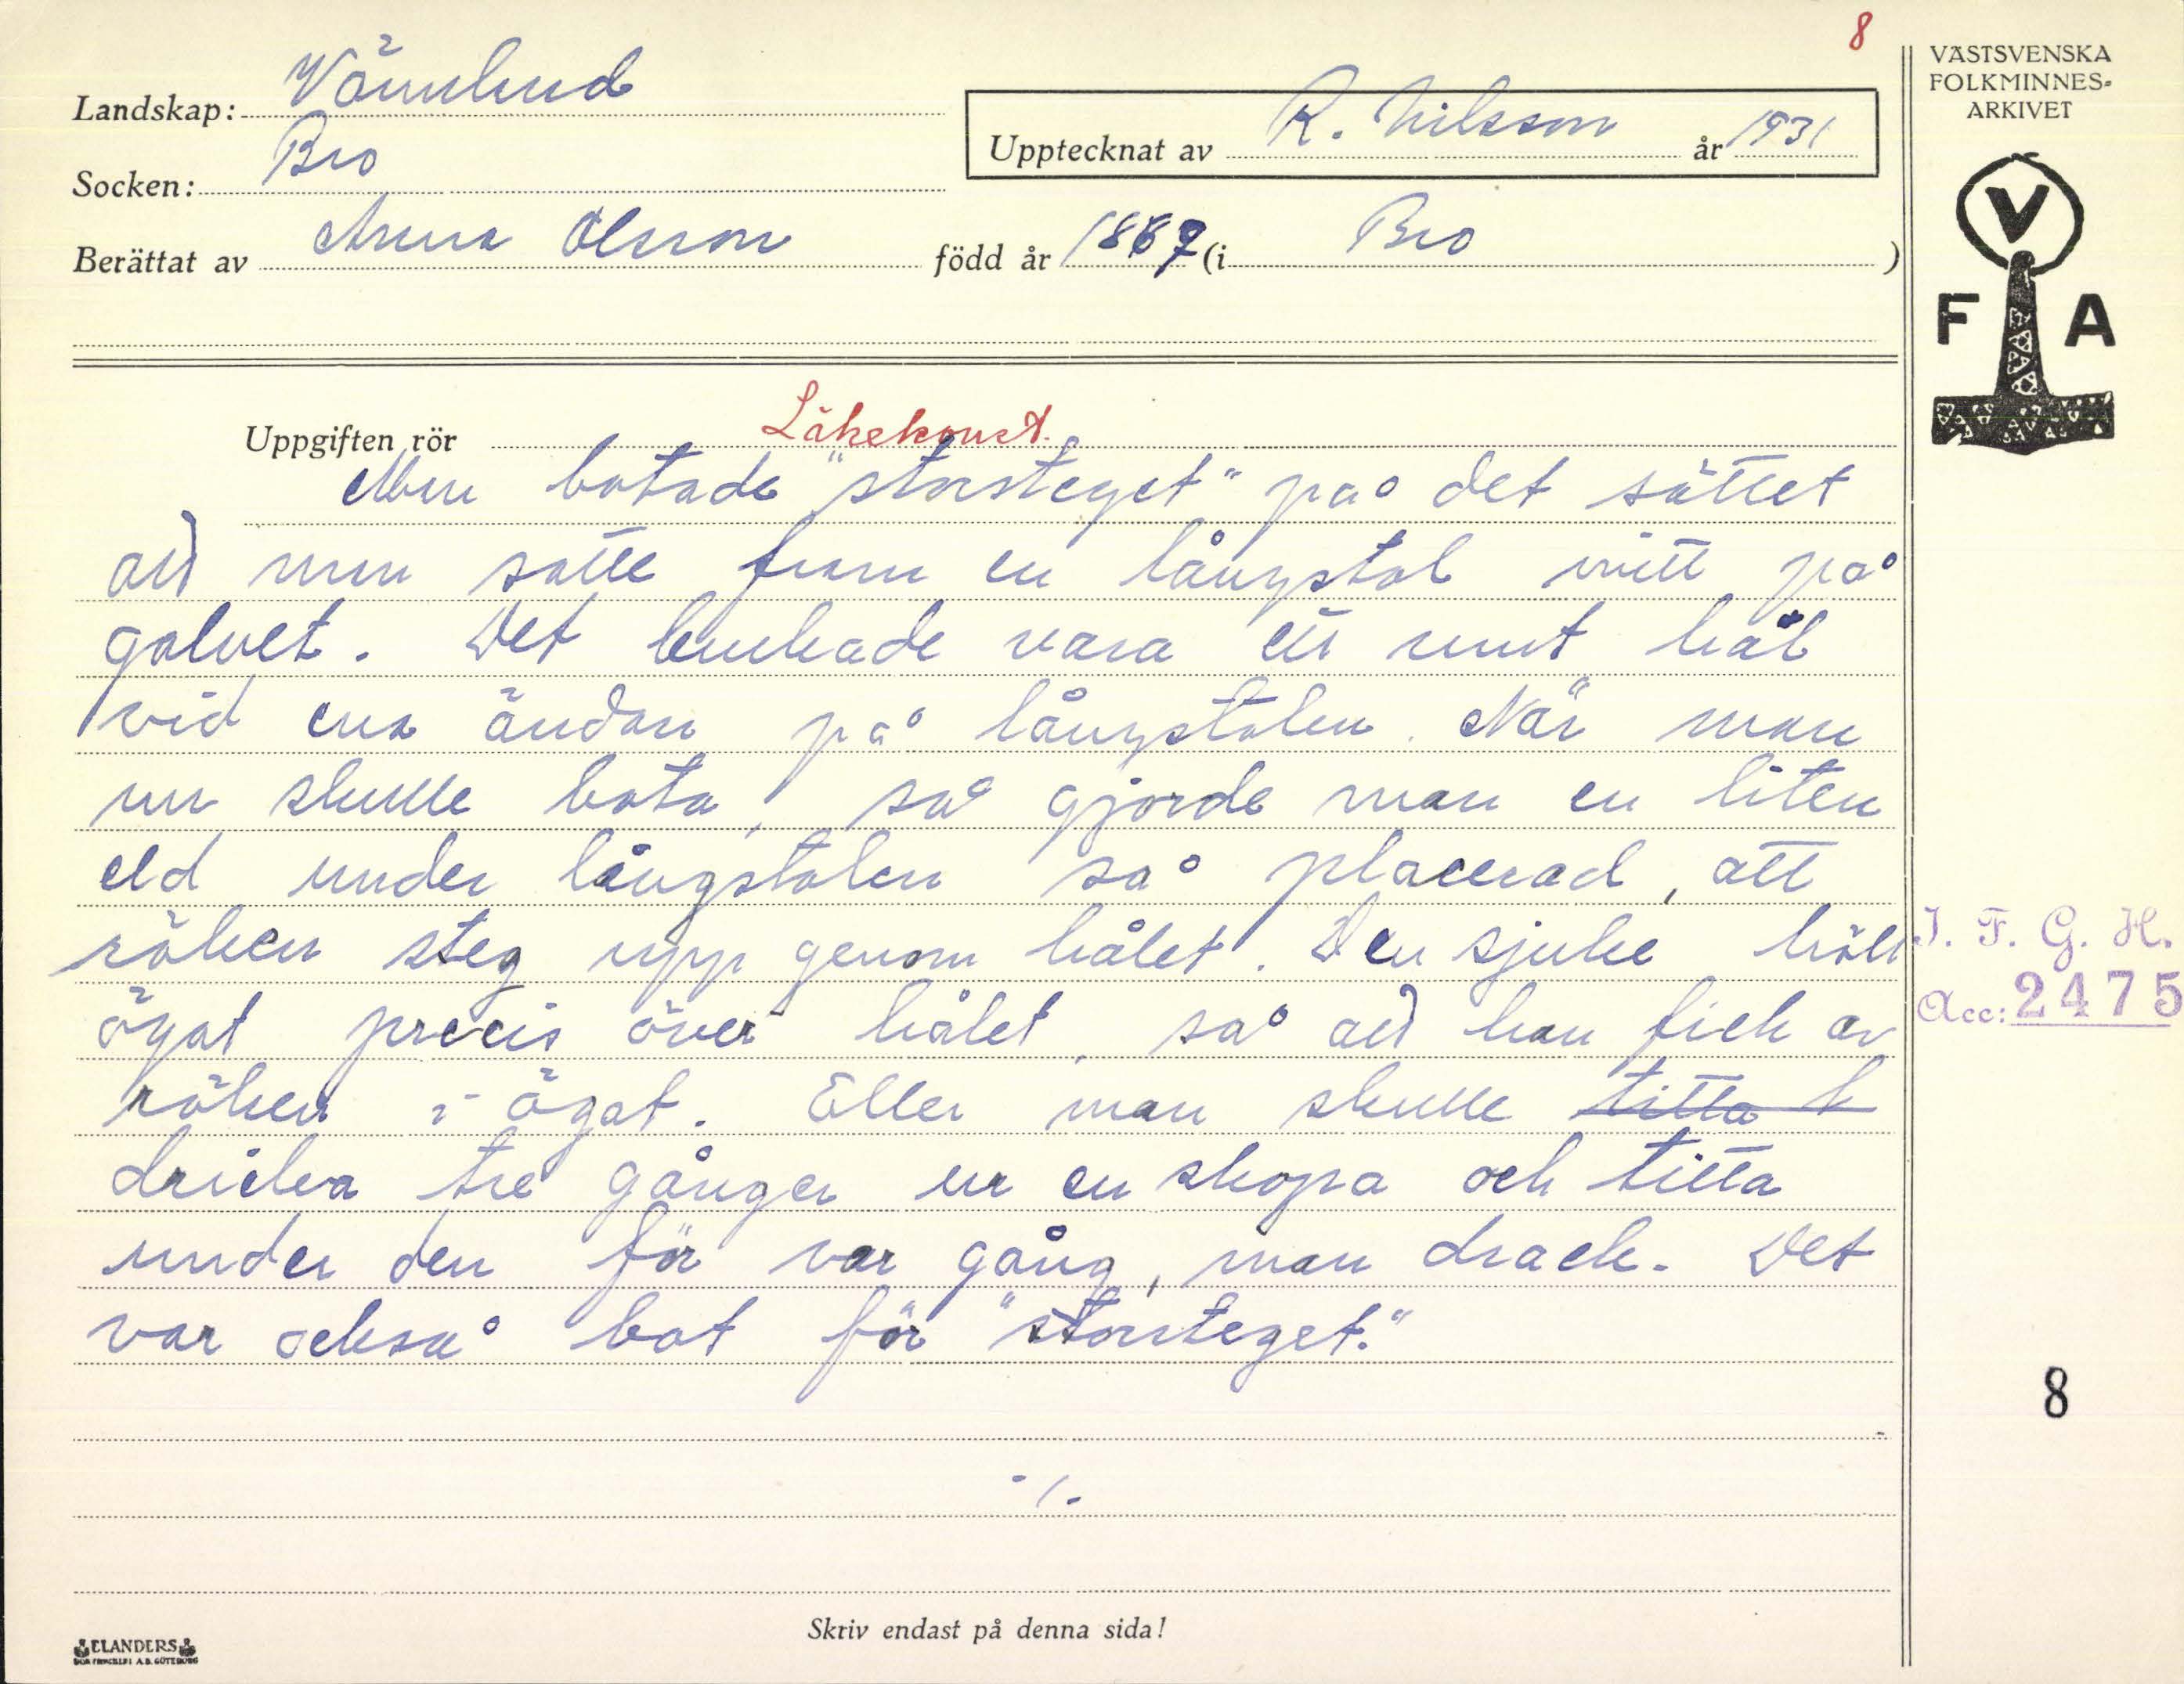 8
VÄSTSVENSKA
FOLKMINNES-
ARKIVET
Landskap: Värmland
Upptecknat av R. Nilsson år 1931
Socken: Bro
Berättat av Anna Olsson född år 1867 (i Bro)
V
F A
Uppgiften rör Läkekonst.
Man botade "storsteget" på det sättet
att man satte fram en långstol mitt på
golvet. Det brukade vara ett runt hål
vid ena ändan på långstolen. När man
nu skulle bota, så gjorde man en liten
eld under långstolen så placerad, att
röken steg upp genom hålet. Den sjuke höll
ögat precis över hålet, så att han fick av
röken i ögat. Eller man skulle titta h
dricka tre gånger ur en skopa och titta
under den för var gång, man drack. Det
var också bot för "storsteget."
-/-
I. F. G. H.
Acc: 2475
8
Skriv endast på denna sida!
ELANDERS